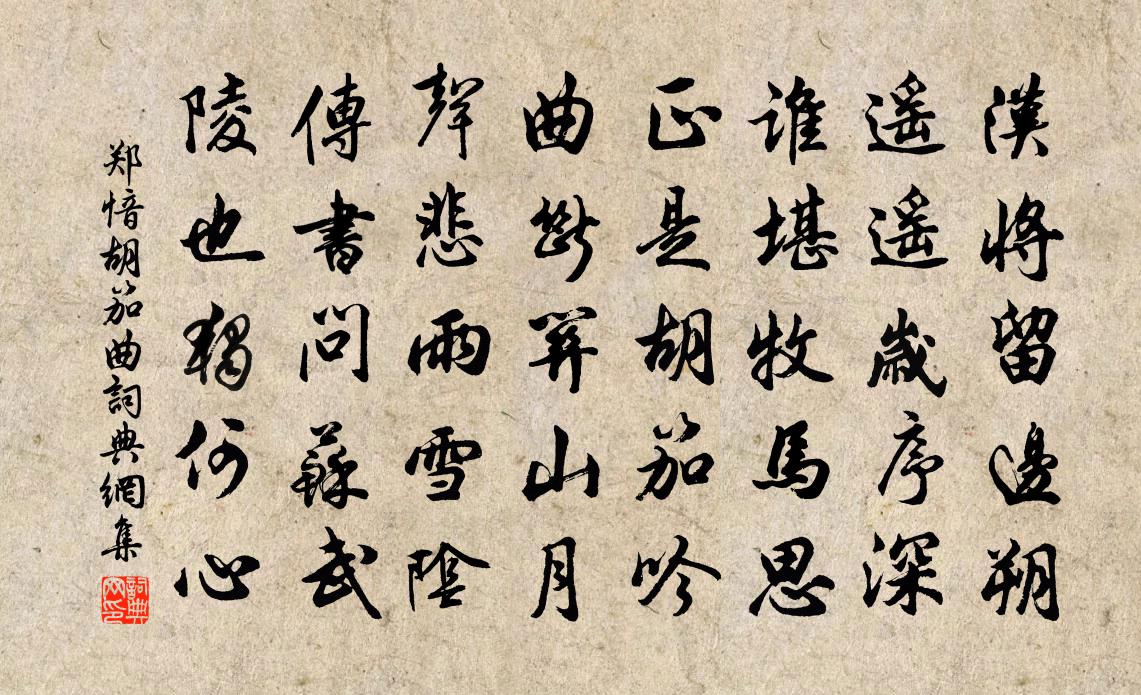 漢將留邊朔
遥遥歲序深
誰堪牧馬思
正是胡笳吟
曲斷關山月
聲悲雨雪陰
傳書問蘇武
陵也獨何心
郑愔胡笳曲詞典網集
詞典網印